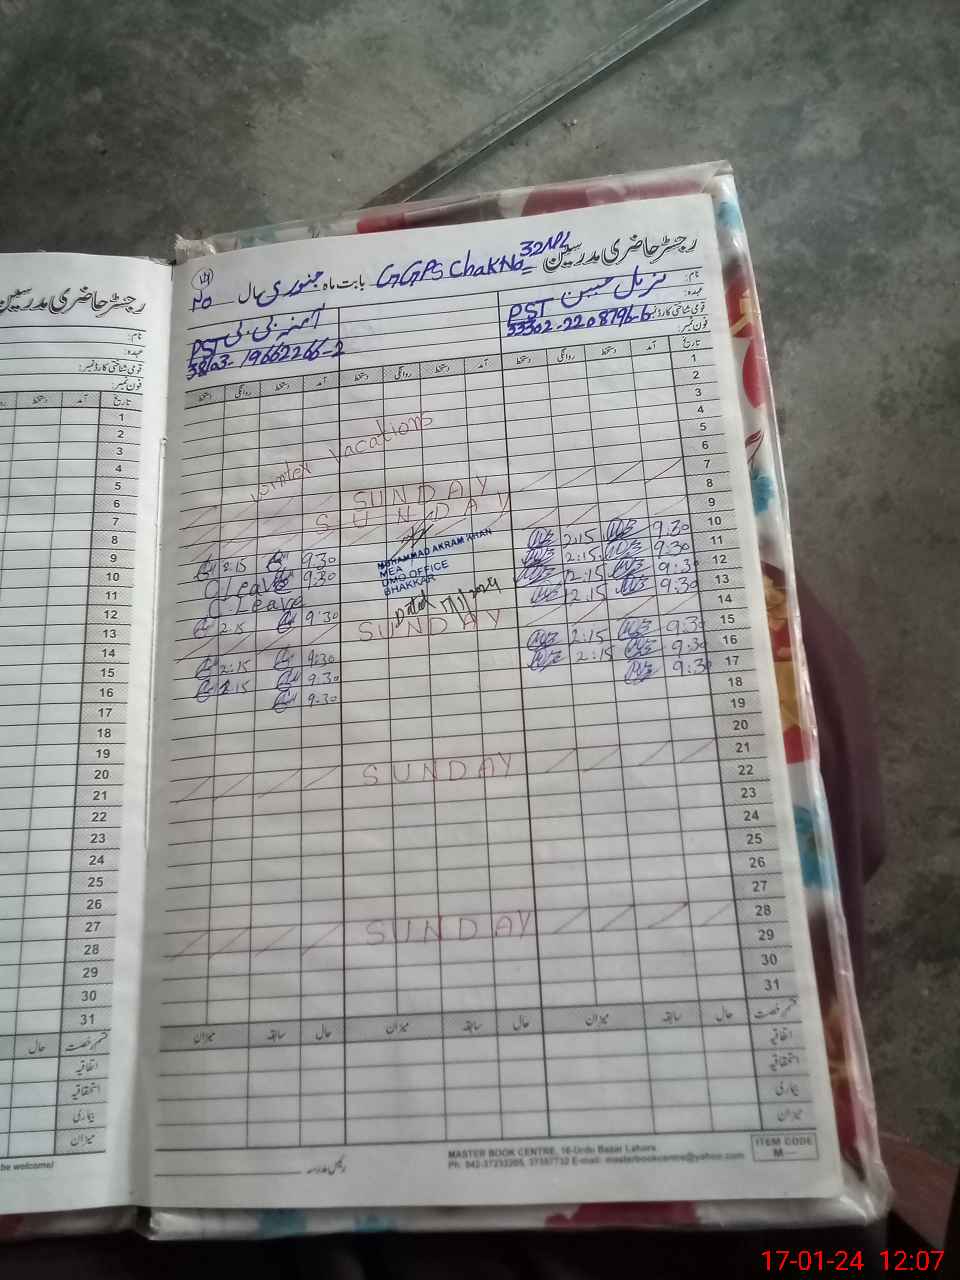 رجسٹر حاضری مدرسین GGPS Chak No 32 بابت ماہ جنوری سال
نام:
عہدہ: PST PST
قومی شناختی کارڈ نمبر: 33302-2208796-6 38103-19662266-2
فون نمبر:
تاریخ آمد دستخط روانگی دستخط آمد دستخط روانگی دستخط آمد دستخط روانگی دستخط
1
2
3
4
5 winter vacations
6
7 SUNDAY
8 SUNDAY
9
10 9:30 2:15 9:30 2:15
11 9:30 2:15 9:30 C Leave
12 9:30 2:15 C-Leave
13 9:30 2:15 9:30 2:15
14 SUNDAY
15 9:30 2:15 9:30 2:15
16 9:30 2:15 9:30 2:15
17 9:30 9:30
18
19
20
21 SUNDAY
22
23
24
25
26
27
28 SUNDAY
29
30
31
MUHAMMAD AKRAM KHAN
MEA
DMO OFFICE
BHAKKAR
Dated 17/1/2024
قسم رخصت حال سابقہ میزان حال سابقہ میزان حال سابقہ میزان
اتفاقیہ
استحقاقیہ
بیماری
میزان
رئیس مدرسہ
MASTER BOOK CENTRE, 16-Urdu Bazar Lahore
Ph: 042-37232205, 37357732 E-mail: masterbookcentre@yahoo.com
ITEM CODE
M
رجسٹر حاضری مدرسین
نام:
عہدہ:
قومی شناختی کارڈ نمبر:
فون نمبر:
تاریخ آمد دستخط
1
2
3
4
5
6
7
8
9
10
11
12
13
14
15
16
17
18
19
20
21
22
23
24
25
26
27
28
29
30
31
قسم رخصت حال
اتفاقیہ
استحقاقیہ
بیماری
میزان
be welcome!
17-01-24 12:07